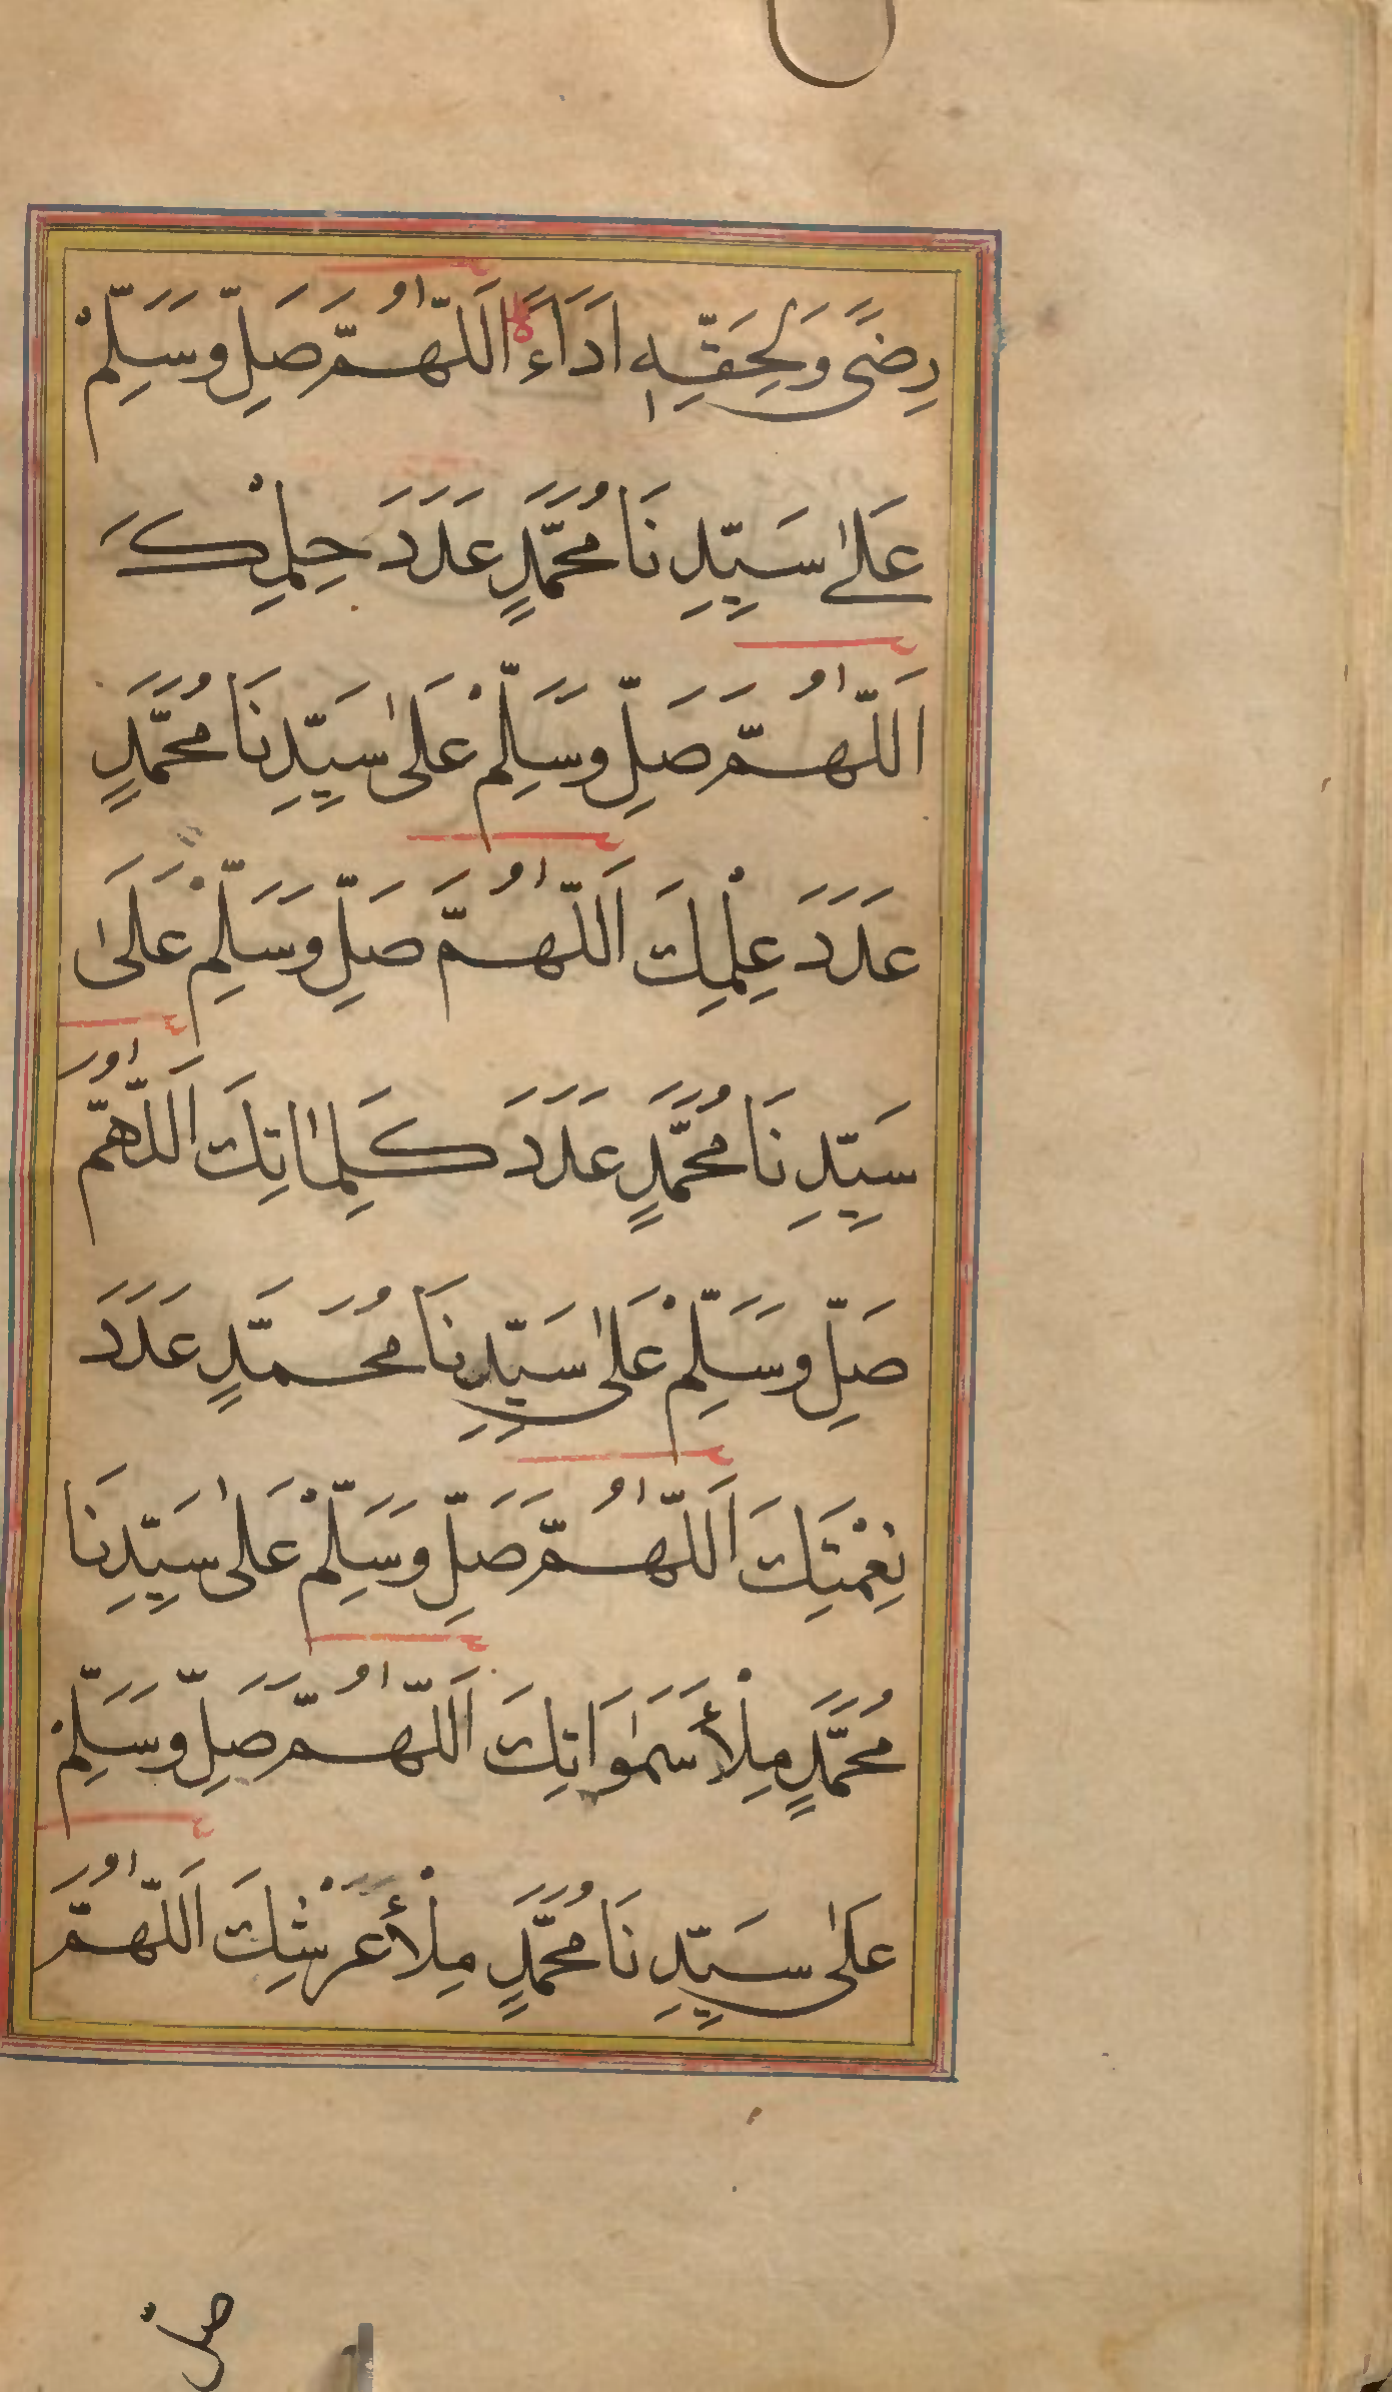 رِضًى وَلِحَقِّهٖ اَدَاءً اَللّٰهُمَّ صَلِّ وَسَلِّمْ
عَلٰى سَيِّدِنَا مُحَمَّدٍ عَدَدَ حِلْمِكَ
اَللّٰهُمَّ صَلِّ وَسَلِّمْ عَلٰى سَيِّدِنَا مُحَمَّدٍ
عَدَدَ عِلْمِكَ اَللّٰهُمَّ صَلِّ وَسَلِّمْ عَلٰى
سَيِّدِنَا مُحَمَّدٍ عَدَدَ كَلِمٰاتِكَ اَللّٰهُمَّ
صَلِّ وَسَلِّمْ عَلٰى سَيِّدِنَا مُحَمَّدٍ عَدَدَ
نِعْمَتِكَ اَللّٰهُمَّ صَلِّ وَسَلِّمْ عَلٰى سَيِّدِنَا
مُحَمَّدٍ مِلْأَ سَمَٰوَاتِكَ اَللّٰهُمَّ صَلِّ وَسَلِّمْ
عَلٰى سَيِّدِنَا مُحَمَّدٍ مِلْأَ عَرْشِكَ اَللّٰهُمَّ
صل